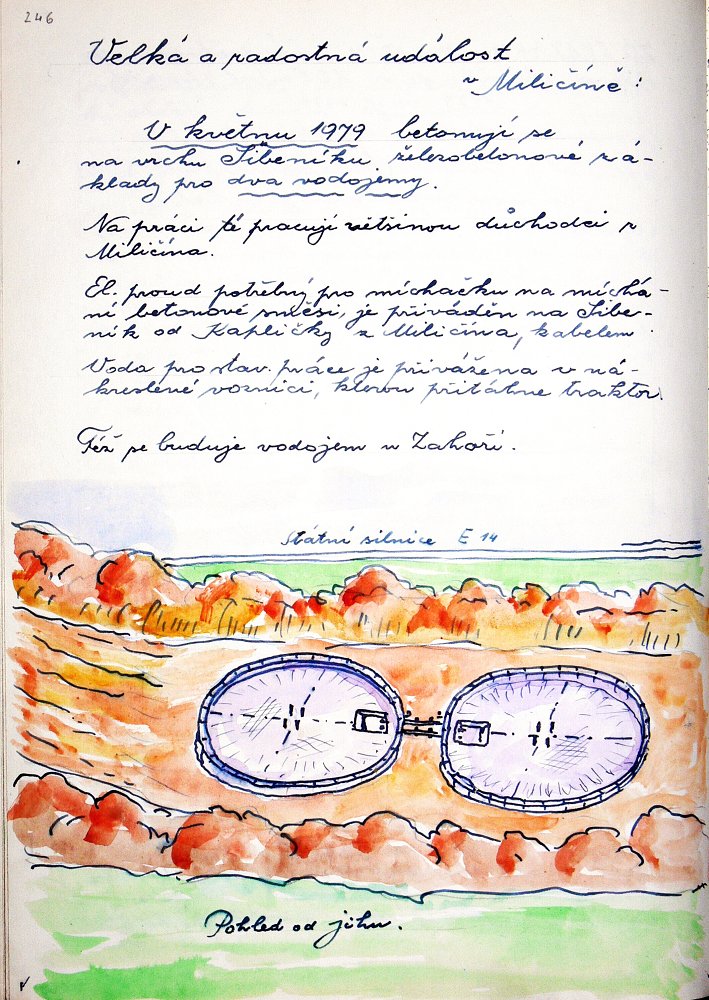 246
Velká a radostná událost
v Miličíně:
V květnu 1979 betonují se
na vrchu Šibeníku, železobetonové zá-
klady pro dva vodojemy.
Na práci té pracují většinou důchodci z
Miličína.
El. proud potřebný pro míchačku na míchá-
ní betonové směsi, je přiváděn na Šibe-
ník od Kapličky z Miličína, kabelem.
Voda pro stav. práce je přivážena v ná-
kreslené voznici, kterou přitáhne traktor.
Též se buduje vodojem u Zahoří.
Státní silnice E 14
Pohled od jihu.